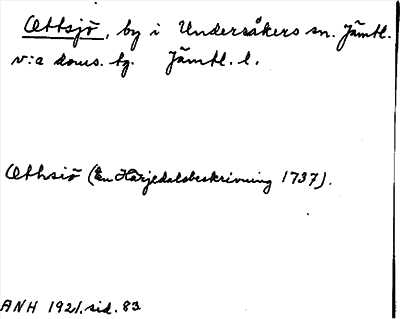 Ottsjö, by i Undersåkers sn. Jämtl.
v:a doms. tg. Jämtl. l.
Othsiö (En Härjedalsbeskrivning 1737).
ANH 1921. sid. 83